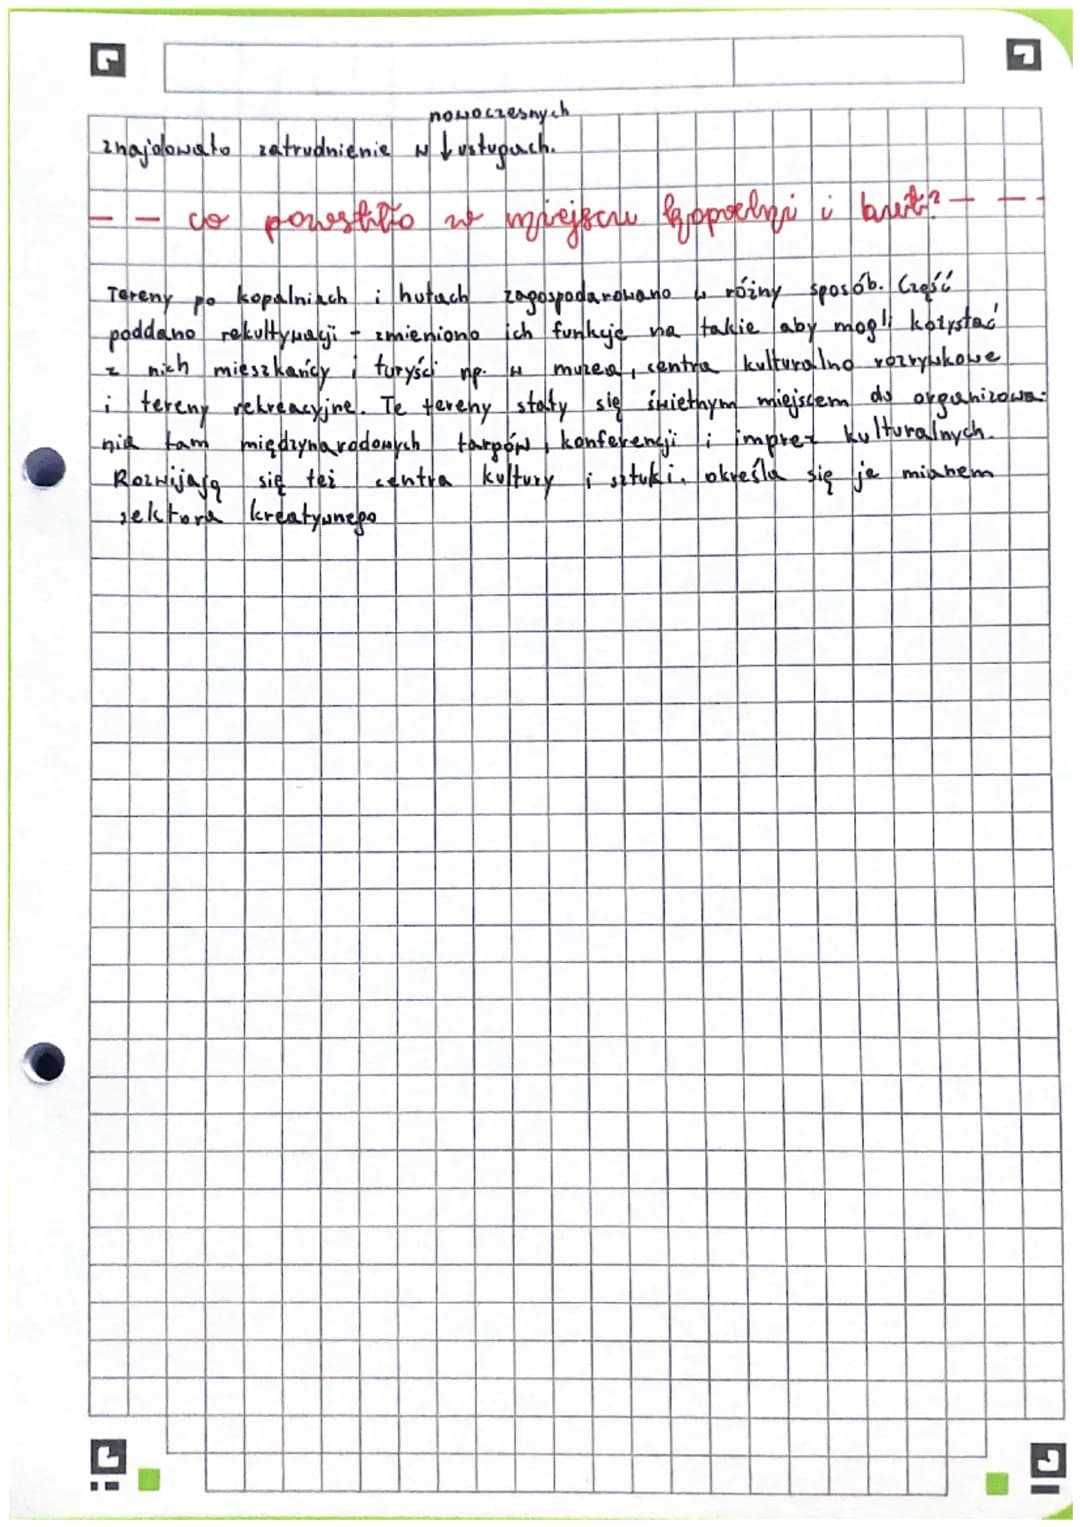 nowoczesnych
znajdowało zatrudnienie w ↓ usługach.
- - co powstało w miejscu kopalni i hut? - -
Tereny po kopalniach i hutach zagospodarowano w różny sposób. Część
poddano rekultywacji - zmieniono ich funkcję na takie aby mogli kożystać
z nich mieszkańcy i turyści np. w muzea, centra kulturalno rozrywkowe
i tereny rekreacyjne. Te tereny stały się świetnym miejscem do organizowa-
nia tam międzynarodowych targów, konferencji i imprez kulturalnych.
Rozwijają się też centra kultury i sztuki, określa się je mianem
sektora kreatywnego